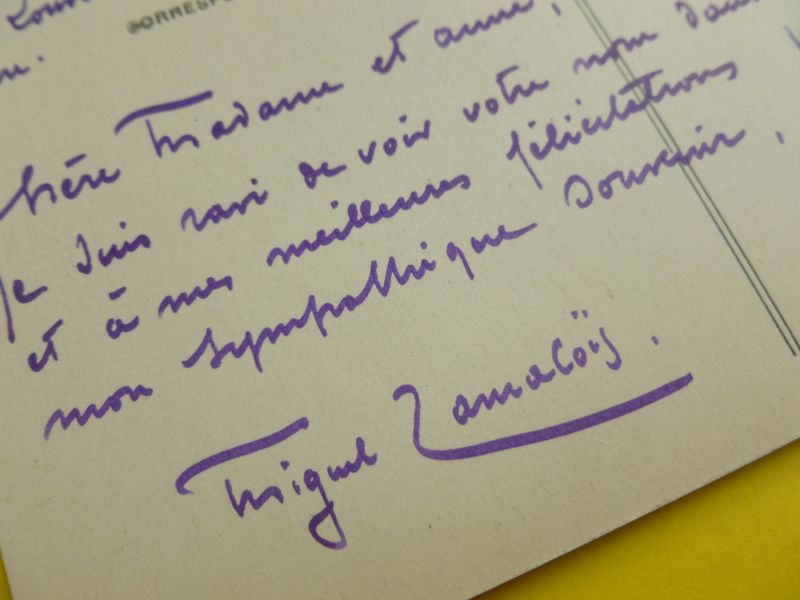 CORRESPO
Chère Madame et amie,
Je suis ravi de voir votre nom dans
et à mes meilleures félicitations
mon sympathique souvenir,
Miguel Zamacoïs.